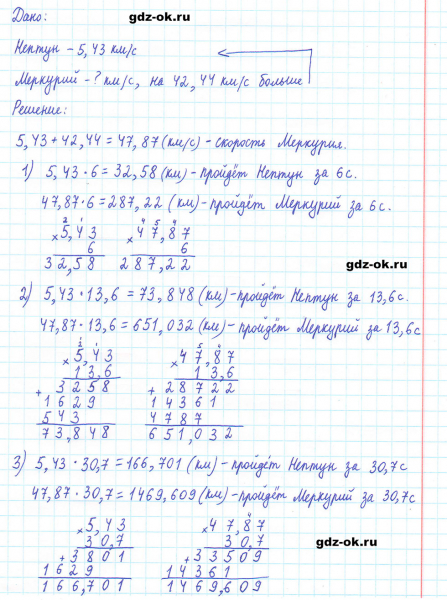 Дано:
gdz-ok.ru
Нептун - 5,43 км/с
Меркурий - ? км/с, на 42,44 км/с больше
Решение:
5,43 + 42,44 = 47,87 (км/с) - скорость Меркурия.
1) 5,43 · 6 = 32,58 (км) - пройдёт Нептун за 6 с.
47,87 · 6 = 287,22 (км) - пройдёт Меркурий за 6 с.
2 1 4 5 4
× 5,43 × 47,87
6 6
32,58 287,22
gdz-ok.ru
2) 5,43 · 13,6 = 73,848 (км) - пройдёт Нептун за 13,6 с.
47,87 · 13,6 = 651,032 (км) - пройдёт Меркурий за 13,6 с
× 5,43 × 47,87
13,6 13,6
+ 3258 + 28722
1629 14361
543 4787
73,848 651,032
3) 5,43 · 30,7 = 166,701 (км) - пройдёт Нептун за 30,7 с
47,87 · 30,7 = 1469,609 (км) - пройдёт Меркурий за 30,7 с
× 5,43 × 47,87
30,7 30,7
gdz-ok.ru
+ 3801 + 33509
1629 14361
166,701 1469,609